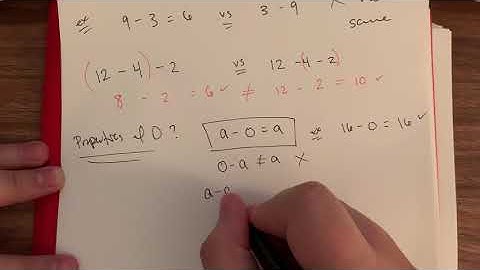 ex 9 - 3 = 6 vs 3 - 9 X
same
(12 - 4) - 2 vs 12 - (4 - 2)
8 - 2 = 6 ✓ ≠ 12 - 2 = 10 ✓
Properties of 0? a - 0 = a ex 16 - 0 = 16 ✓
0 - a ≠ a X
a - a